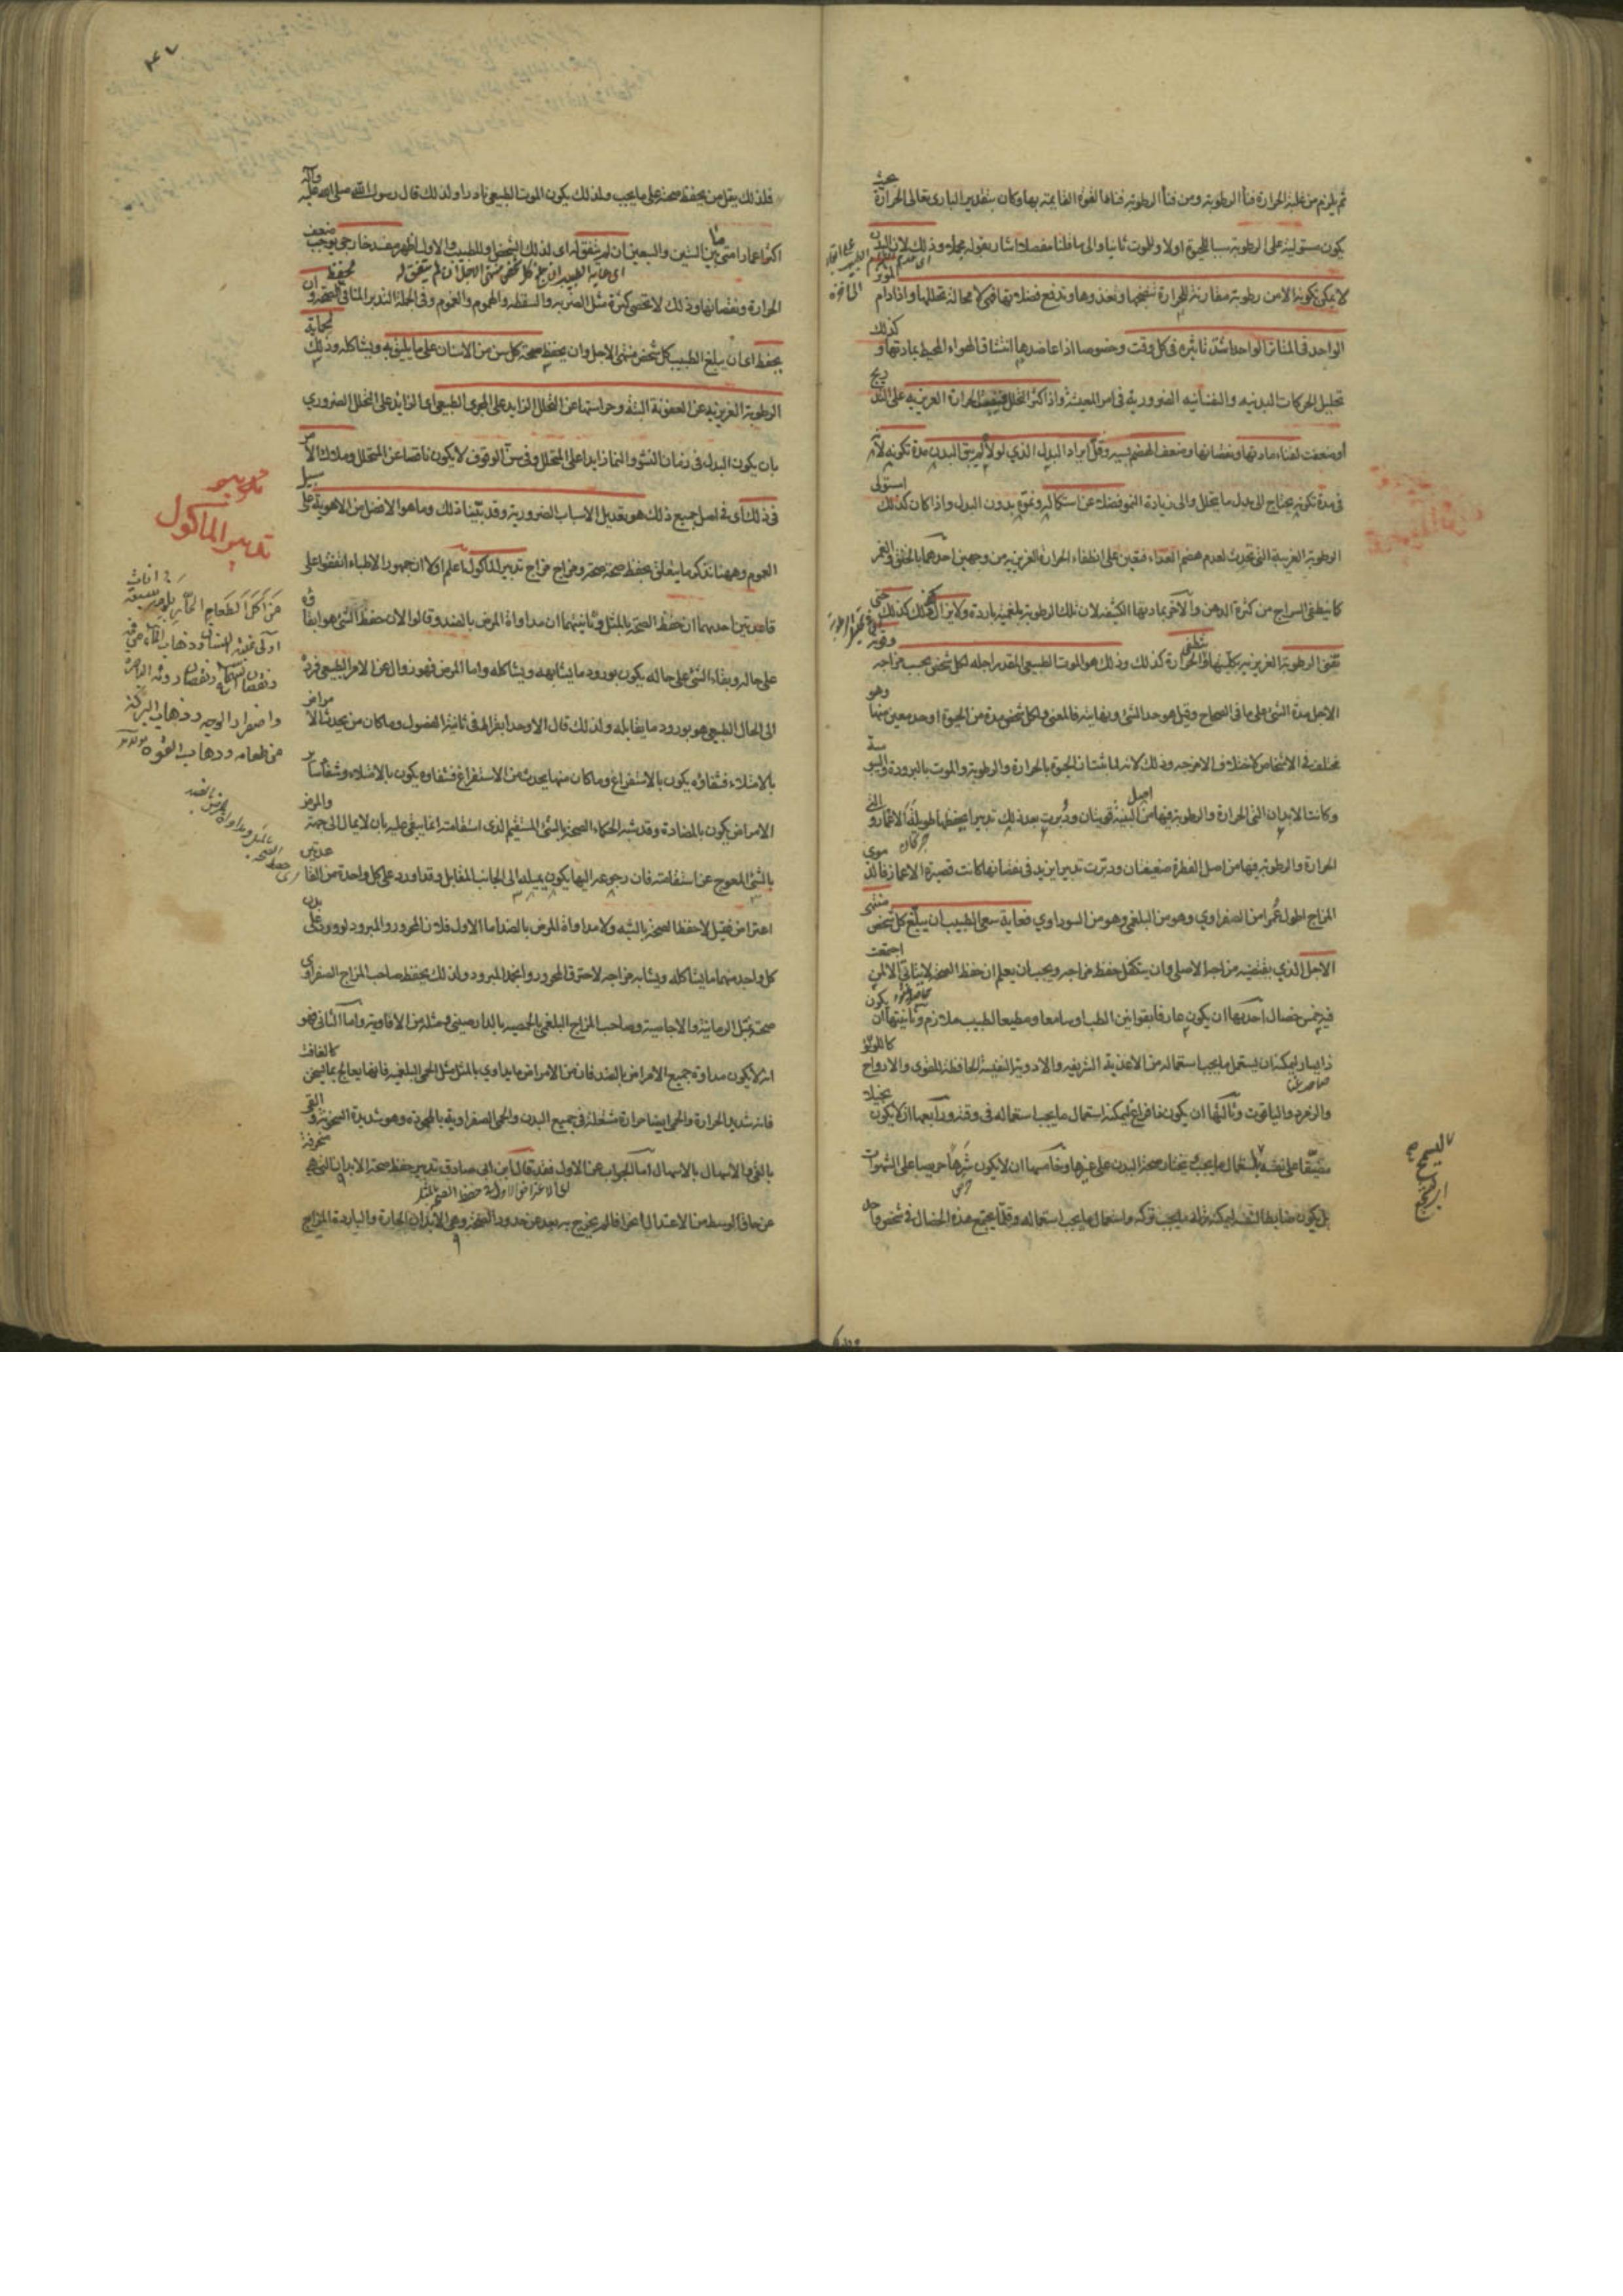 ثم يلزم من غلبة الحرارة فناء الرطوبة ومن فناء الرطوبة فناء القوة القايمة بها وكان بتقدير الباري تعالى الحرارة
يكون مستولية على الرطوبة سببا للحيوة اولا وللموت ثانيا والى ما قلنا مفصلا اشار بقوله مجملا وذلك لان البدن
لا يمكن تكونه الا من رطوبة مقارنة لحرارة تنضجها وتغذوها وتدفع فضلاتها فهي لا محالة تحللها واذا دام المؤثر
الواحد في المتاثر الواحد اشتد تاثيره في كل وقت وخصوصا اذا عاضدها انتشاف الهواء المحيط بمادتها و كذلك
تحليل الحركات البدنية والنفسانية الضرورية في امر المعيشة واذا كثر التحلل ضعفت الحرارة الغريزية على التدريج
او ضعفت لفناء مادتها ونقصانها وضعف الهضم بسببه وقل ايراد البدل الذي لولاه لم يبق البدن مدة تكونه لانه
في مدة تكونه يحتاج الى بدل ما يتحلل والى زيادة النمو فضلا عن استكماله ونموه بدون البدل واذا كان كذلك استولى
الرطوبة الغريبة التي تحدث لعدم هضم الغذاء فتعين على انطفاء الحرارة الغريزية من وجهين احدهما بالخنق والغمر
كما ينطفي السراج من كثرة الدهن والآخر بمادتها الكثيفة لان تلك الرطوبة بلغمية باردة ولا يزال كذلك حتى
تفنى الرطوبة الغريزية بكليتها والحرارة كذلك وذلك هو الموت الطبيعي المقدر اجله لكل شخص بحسب مزاجه
الاجل مدة الشئ على ما في الصحاح وقيل هو حد الشئ ولكل شخص مدة من الحيوة او حد معين منها وهو
مختلف في الاشخاص لاختلاف الامزجة وذلك لانه لما كان الحيوة بالحرارة والرطوبة والموت بالبرودة واليبوسة
وكانت الابدان التي الحرارة والرطوبة فيها من اصل البنية قويتان ودبرت بعد ذلك تدبيرا يحفظها طويلة الاعمار والتي
الحرارة والرطوبة فيها من اصل الفطرة ضعيفتان ودبرت تدبيرا يزيد في نقصانها كانت قصيرة الاعمار فالدموي
المزاج اطول عمرا من الصفراوي وهو من البلغمي وهو من السوداوي فغاية سعي الطبيب ان يبلغ كل شخص منتهى
الاجل الذي يقتضيه مزاجه الاصلي وان يتكفل حفظ مزاجه ويجب ان يعلم ان حفظ الصحة لا يتاتى الا لمن اجتمعت
فيه خمس خصال احديها ان يكون عارفا بقوانين الطب او سامعا ومطيعا لطبيب ملازم وثانيتها ان يكون
ذا يسار ليمكنه ان يستعمل ما يجب استعماله من الاغذية الشريفة والادوية النفيسة الحافظة للقوى والارواح كاللؤلؤ
والزمرد والياقوت وثالثها ان يكون ذا فراغ ليمكنه استعمال ما يجب استعماله في وقته ورابعها ان لا يكون بخيلا
مضيقا على نفسه باستعمال ما يجب ويختار صحة البدن على غيرها وخامسها ان لا يكون شرها حريصا على الشهوات
بل يكون ضابطا لنفسه ليمكنه ترك ما يجب تركه واستعمال ما يجب استعماله وقلما يجتمع هذه الخصال في شخص واحد
فلذلك يقل من يحفظ صحته على ما يجب ولذلك يكون الموت الطبيعي نادرا ولذلك قال رسول الله صلى الله عليه وآله
اكثر اعمار امتي ما بين الستين والسبعين ان لم يتفق له اي لذلك الشخص او للطبيب والاول اظهر مفسد خارجي يوجب ضعف
الحرارة ونقصانها وذلك لا يحصى كثرة مثل الضربة والسقطة والهموم والغموم وفي الجملة التدبير المنافي للصحة وان
يحفظ اي ان يبلغ الطبيب كل شخص منتهى الاجل وان يحفظ صحة كل سن من الاسنان على ما يليق به ويشاكله وذلك بحماية
الرطوبة الغريزية عن العفونة البتة وحراستها عن التحلل الزايد على المجرى الطبيعي اي الزايد على التحلل الضروري
بان يكون البدل في زمان النشو والنماء زايدا على المتحلل وفي سن الوقوف لا يكون ناقصا عن المتحلل وملاك الامر
في ذلك اي في اصل جميع ذلك هو تعديل الاسباب الضرورية وقد بينا ذلك وما هو الافضل من الاهوية على سبيل
العموم وههنا نذكر ما يتعلق بحفظ صحة صحة ومزاج مزاج تدبير الماكول اعلم اولا ان جمهور الاطباء اتفقوا على
قاعدتين احديهما ان حفظ الصحة بالمثل وثانيتهما ان مداواة المرض بالضد وقالوا لان حفظ الشئ هو ابقاؤه
على حاله وبقاء الشئ على حاله يكون بورود ما يشابهه ويشاكله واما المرض فهو زوال عن الامر الطبيعي فرده
الى الحال الطبيعي هو بورود ما يقابله ولذلك قال الاوحد ابقراط في ثانية الفصول وما كان من يحدث الامراض
بالامتلاء فشفاؤه يكون بالاستفراغ وما كان منها يحدث من الاستفراغ فشفاؤه يكون بالامتلاء وشفاء ساير
الامراض يكون بالمضادة وقد شبه الحكماء الصحة بالشئ المستقيم الذي استقامته انما يبقى عليه بان لا يمال الى جهة والمرض
بالشئ المعوج عن استقامته فان رجوعه اليها يكون بميله الى الجانب المقابل وقد اورد على كل واحدة من القاعدتين
اعتراض فقيل لا حفظ الصحة بالشبه ولا مداواة المرض بالضد اما الاول فلان المحرور والمبرود لو ورد على بدن
كل واحد منهما ما يشاكله ويشابه مزاجه لاحترق المحرور وانجمد المبرود ولذلك يحفظ صاحب المزاج الصفراوي
صحته بمثل الرمانية والاجاصية وصاحب المزاج البلغمي بالحمصية بالدارصيني ومثله من الافاوية واما الثاني فهو
انه لا يكون مداواة جميع الامراض بالضد فان من الامراض ما يداوي بالمثل مثل الحمى البلغمية فانها يعالج بما يسخن كالغافت
فانه شديد الحرارة والحمى ايضا حرارة مشتعلة في جميع البدن والحمى الصفراوية بالسقمونيا وهو شديدة السخونة والقئ
بالقئ والاسهال بالاسهال اما الجواب عن الاول فقد قال ابن ابي صادق تدبير حفظ صحة الابدان التي هي منحرفة
عن حاق الوسط من الاعتدال انحرافا لم يخرج به بعد عن حدود الصحة وهي الابدان الحارة والباردة المزاج
تدبير
تدبير الماكول
من اكل الطعام الحار
واصفرار الوجه وذهاب البركة
من طعامه وذهاب القوة